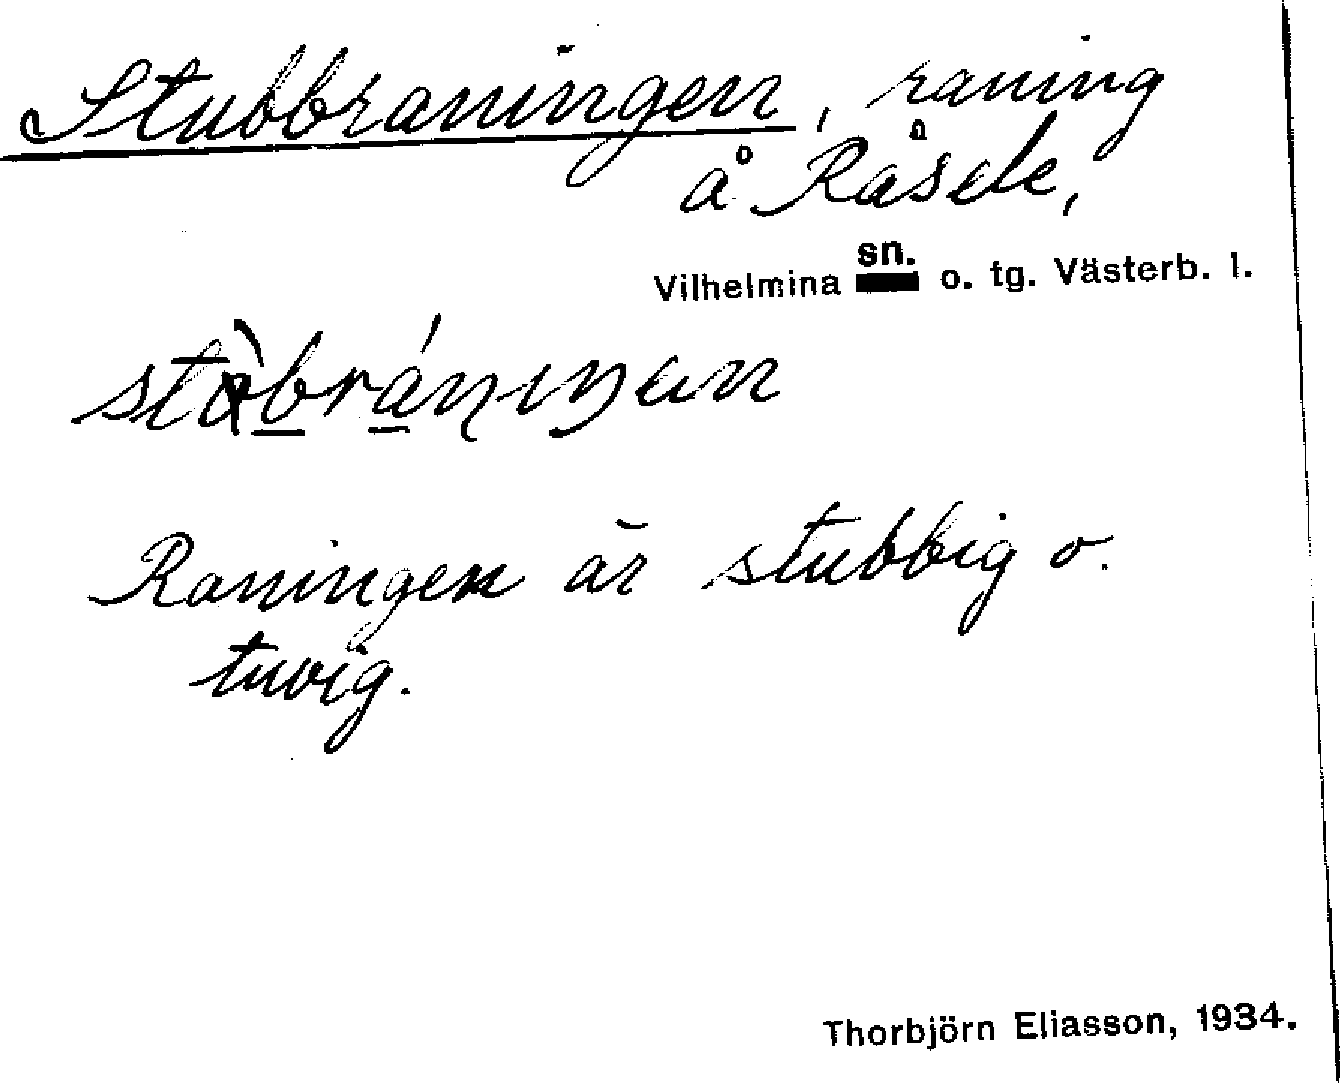 Stubbraningen, raning
å Råsele,
Vilhelmina sn. o. tg. Västerb. l.
Raningen är stubbig o.
tuvig.
Thorbjörn Eliasson, 1934.